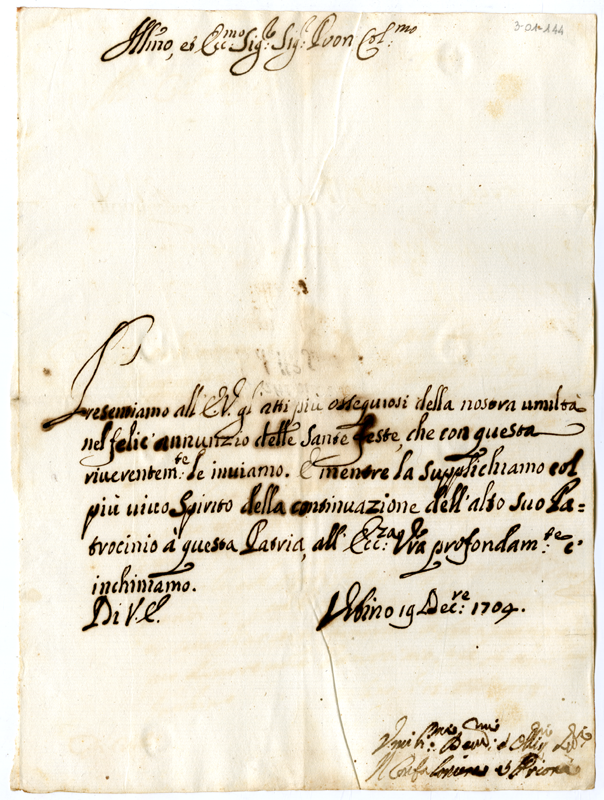 3-01-144
Illmo, et Ecc:mo Sig:r Sig:r Pron Col:mo
Presentiamo all'E.V. gl'atti più ossequiosi della nostra umiltà
nel felic'annunzio delle Sante Feste, che con questa
riverentem:te le inviamo. E mentre la supplichiamo col
più vivo spirito della continuazione dell'alto suo Pa=
trocinio à questa Patria, all'Ecc:za Vra profondam:te c'
inchiniamo.
Di V.E.
Urbino 19 Dec:re 1704.
Umil:mi Dev:mi
Il Confaloniere et Priori